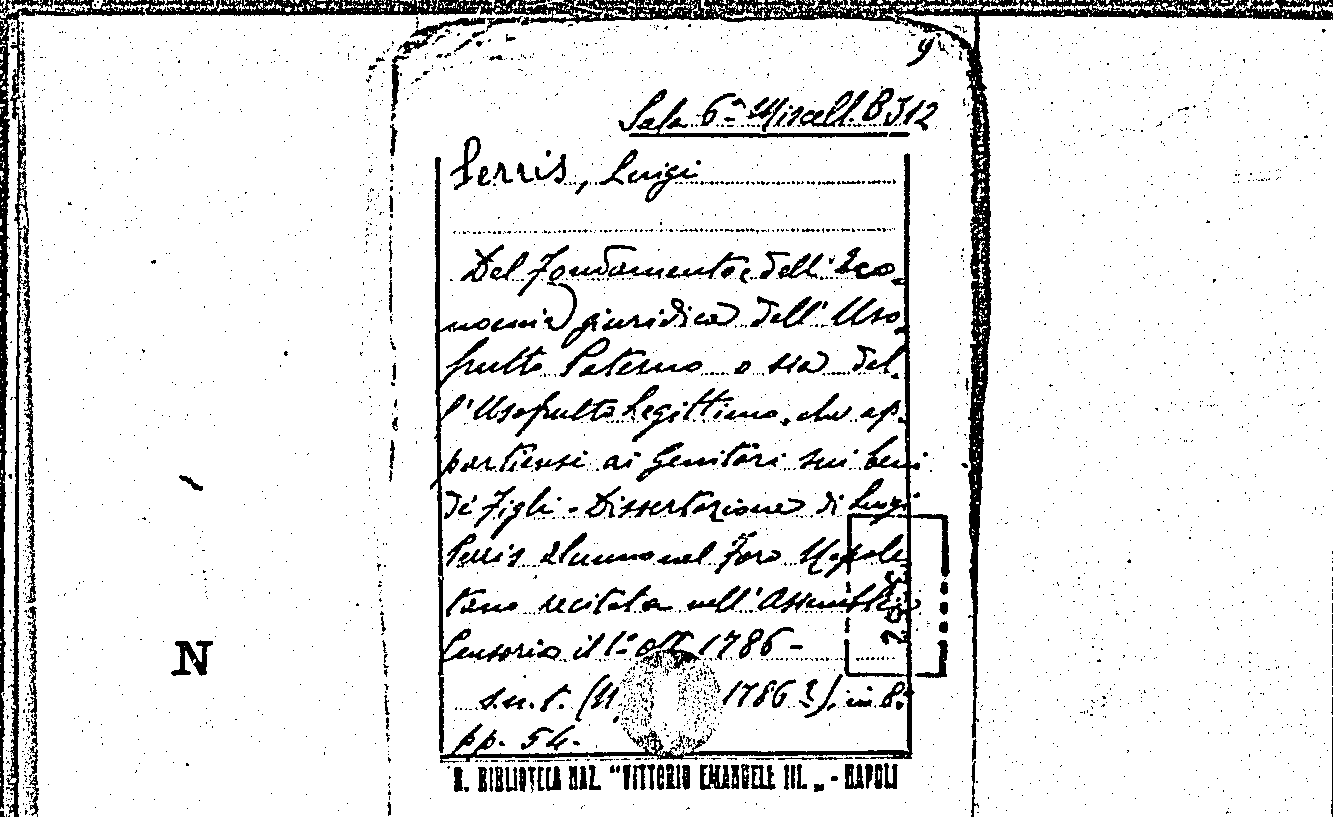 9
Sala 6ª Miscell. B J12
Serris, Luigi
Del fondamento, e dell'Eco-
nomia giuridica dell'Uso-
frutto Paterno o sia del-
l'Usofrutto Legittimo, che ap-
partiensi ai Genitori sui beni
di Figli - Dissertazione di Luigi
Serris Alunno nel Foro Napole-
tano recitata nell'Assemblea
Censoria il 1º ott. 1786 -
s.n.t. (N. 1786?), in 8º
pp. 54.
R. BIBLIOTECA NAZ. "VITTORIO EMANUELE III. „ - NAPOLI
N